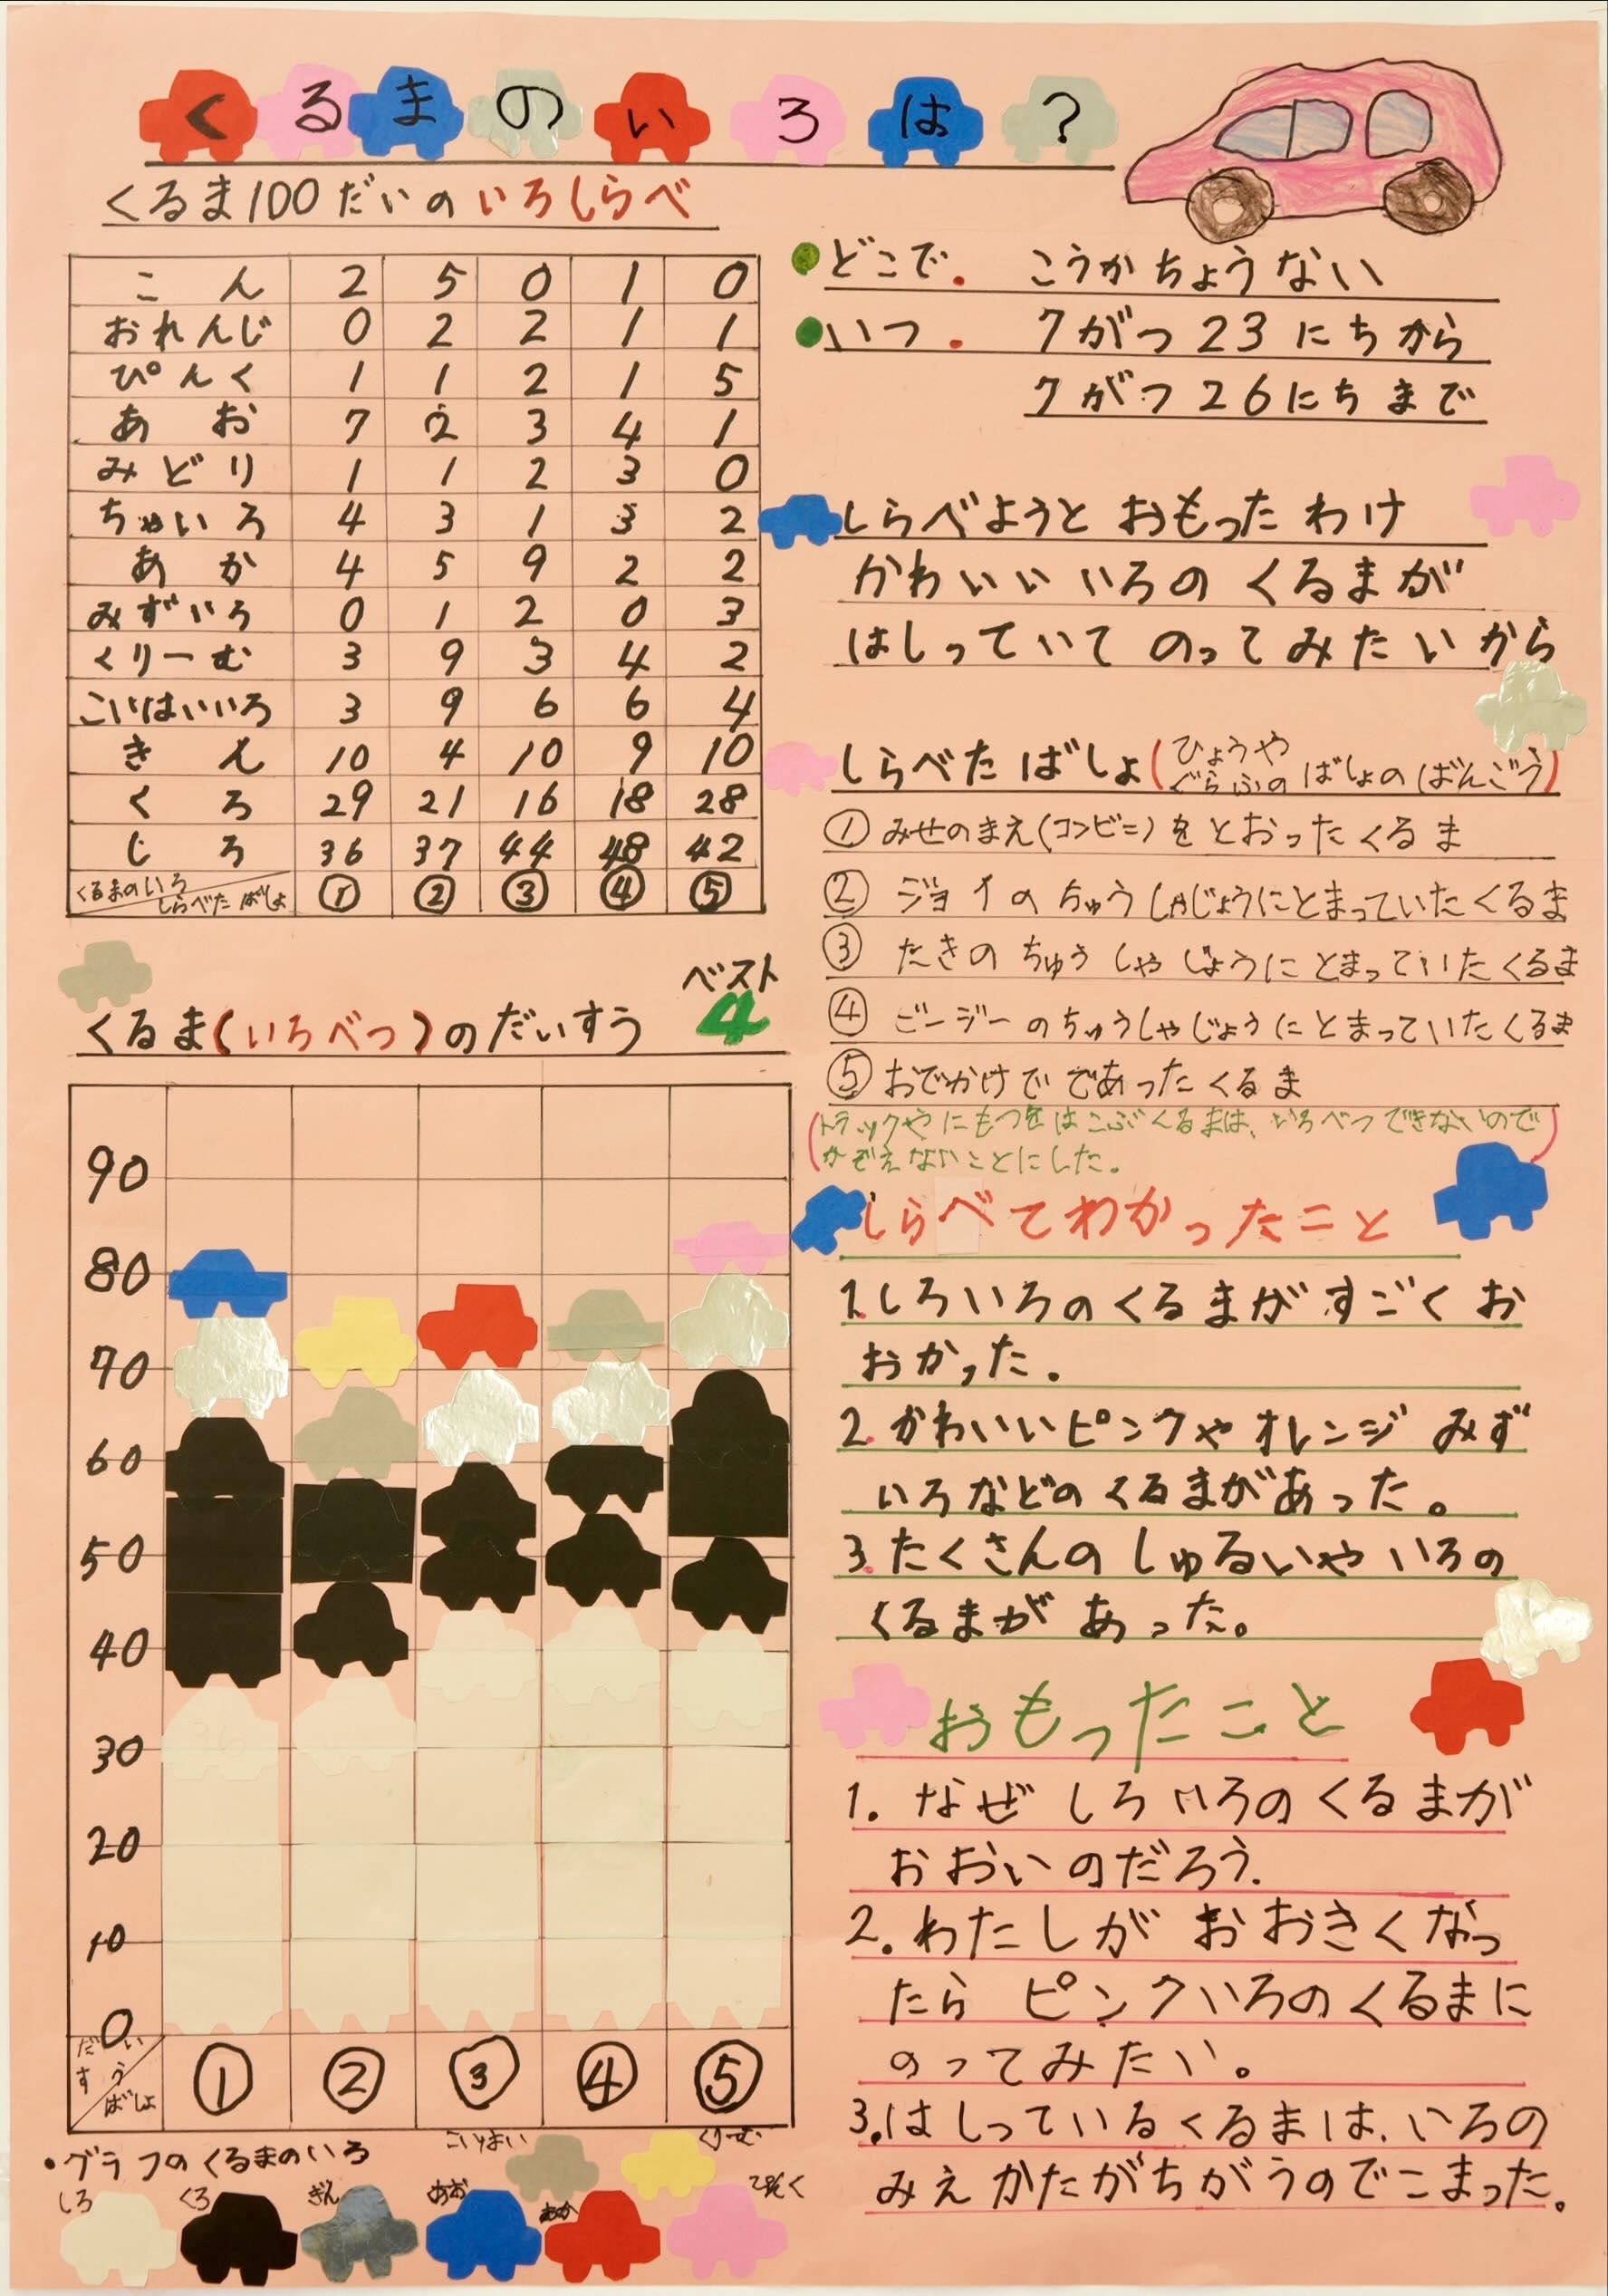 くるまのいろは?
くるま100だいのいろしらべ
こん 2 5 0 1 0
おれんじ 0 2 2 1 1
ぴんく 1 1 2 1 5
あお 7 2 3 4 1
みどり 1 1 2 3 0
ちゃいろ 4 3 1 3 2
あか 4 5 9 2 2
みずいろ 0 1 2 0 3
くりーむ 3 9 3 4 2
こいはいいろ 3 9 6 6 4
きん 10 4 10 9 10
くろ 29 21 16 18 28
しろ 36 37 44 48 42
くるまのいろ
しらべた ばしょ
① ② ③ ④ ⑤
くるま(いろべつ)のだいすう
ベスト
4
90
80
70
60
50
40
30
20
10
0
だいすう
ばしょ
① ② ③ ④ ⑤
・グラフのくるまのいろ
こいはい
くりーむ
しろ
くろ
ぎん
あお
あか
ぴんく
●どこで. こうかちょうない
●いつ. 7がつ23にちから
7がつ26にちまで
しらべようと おもった わけ
かわいい いろの くるまが
はしっていて のってみたいから
しらべた ばしょ(ひょうや
ぐらふの ばしょの ばんごう)
① みせのまえ(コンビニ)を とおった くるま
② ジョイの ちゅうしゃじょうにとまっていたくるま
③ たきの ちゅうしゃじょうに とまっていたくるま
④ ビージーのちゅうしゃじょうにとまっていたくるま
⑤ おでかけで であった くるま
(トラックやにもつをはこぶくるまは、いろべつできないので
かぞえないことにした。)
しらべてわかったこと
1.しろいろのくるまがすごくお
おかった.
2.かわいいピンクや オレンジ みず
いろなどの くるまがあった。
3.たくさんの しゅるいや いろの
くるまが あった。
おもったこと
1. なぜ しろいろの くるまが
おおいのだろう.
2.わたしが おおきくなっ
たら ピンクいろのくるまに
のってみたい。
3.はしっているくるまは、いろの
みえかたがちがうのでこまった。